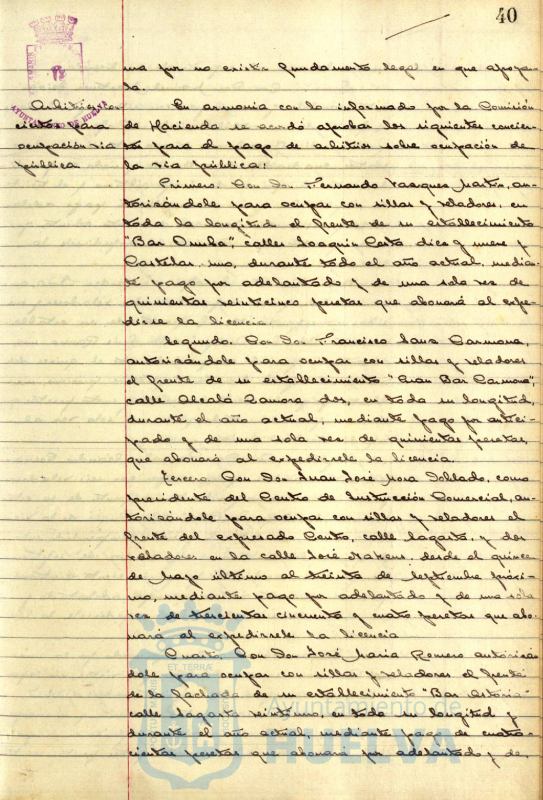 40
ma por no existir fundamento legal en que apoyar-
la.
Arbitrios. Con-
ciertos para
ocupación vía
pública
En armonía con lo informado por la Comisión
de Hacienda se acordó aprobar los siguientes concier-
tos para el pago de arbitrios sobre ocupación de
la vía pública:
Primero. Con Don Fernando Vazquez Martin, au-
torizándole para ocupar con sillas y veladores, en
toda la longitud el frente de su establecimiento
"Bar Onuba", calles Joaquín Costa diez y nueve y
Castelar uno, durante todo el año actual, median-
te pago por adelantado y de una sola vez de
quinientas veinticinco pesetas que abonará al expe-
dirse la licencia.
Segundo. Con Don Francisco Sanz Carmona,
autorizándole para ocupar con sillas y veladores
el frente de su establecimiento "Gran Bar Carmona",
calle Alcalá Zamora dos, en toda su longitud,
durante el año actual, mediante pago por antici-
pado y de una sola vez de quinientas pesetas,
que abonará al expedírsele la licencia.
Tercero. Con Don Juan José Mora Doblado, como
presidente del Centro de Instrucción Comercial, au-
torizándole para ocupar con sillas y veladores el
frente del expresado Centro, calle Sagasta, y dos
veladores en la calle José Nakens, desde el quince
de Mayo último al treinta de Septiembre próxi-
mo, mediante pago por adelantado y de una sola
vez de trescientas cincuenta y cuatro pesetas que abo-
nará al expedírsele la licencia
Cuarto. Con Don José María Romero autorizán-
dole para ocupar con sillas y veladores el frente
de la fachada de su establecimiento "Bar Astoria"
calle Sagasta veintiuno, en toda su longitud y
durante el año actual, mediante pago de cuatro-
cientas pesetas que abonará por adelantado y de
AYUNTAMIENTO DE HUELVA
Ayuntamiento de
HUELVA
ET TERRÆ